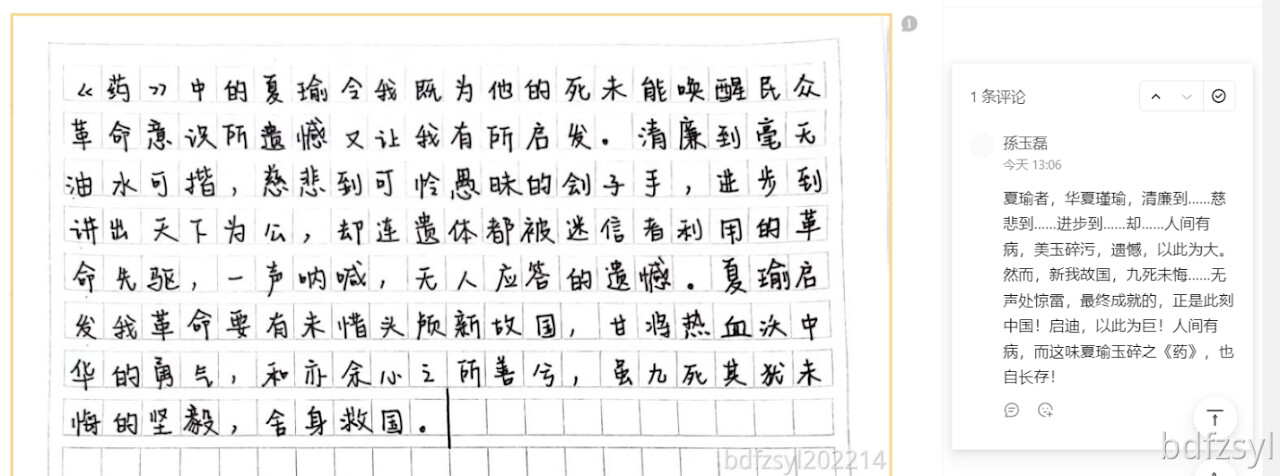 《药》中的夏瑜令我既为他的死未能唤醒民众
革命意识所遗憾又让我有所启发。清廉到毫无
油水可揩，慈悲到可怜愚昧的刽子手，进步到
讲出天下为公，却连遗体都被迷信者利用的革
命先驱，一声呐喊，无人应答的遗憾。夏瑜启
发我革命要有未惜头颅新故国，甘将热血沃中
华的勇气，和亦余心之所善兮，虽九死其犹未
悔的坚毅，舍身救国。
bdfzsyl202214
1
1 条评论
孫玉磊
今天 13:06
夏瑜者，华夏瑾瑜，清廉到……慈
悲到……进步到……却……人间有
病，美玉碎污，遗憾，以此为大。
然而，新我故国，九死未悔……无
声处惊雷，最终成就的，正是此刻
中国！启迪，以此为巨！人间有
病，而这味夏瑜玉碎之《药》，也
自长存！
bdfzsyl